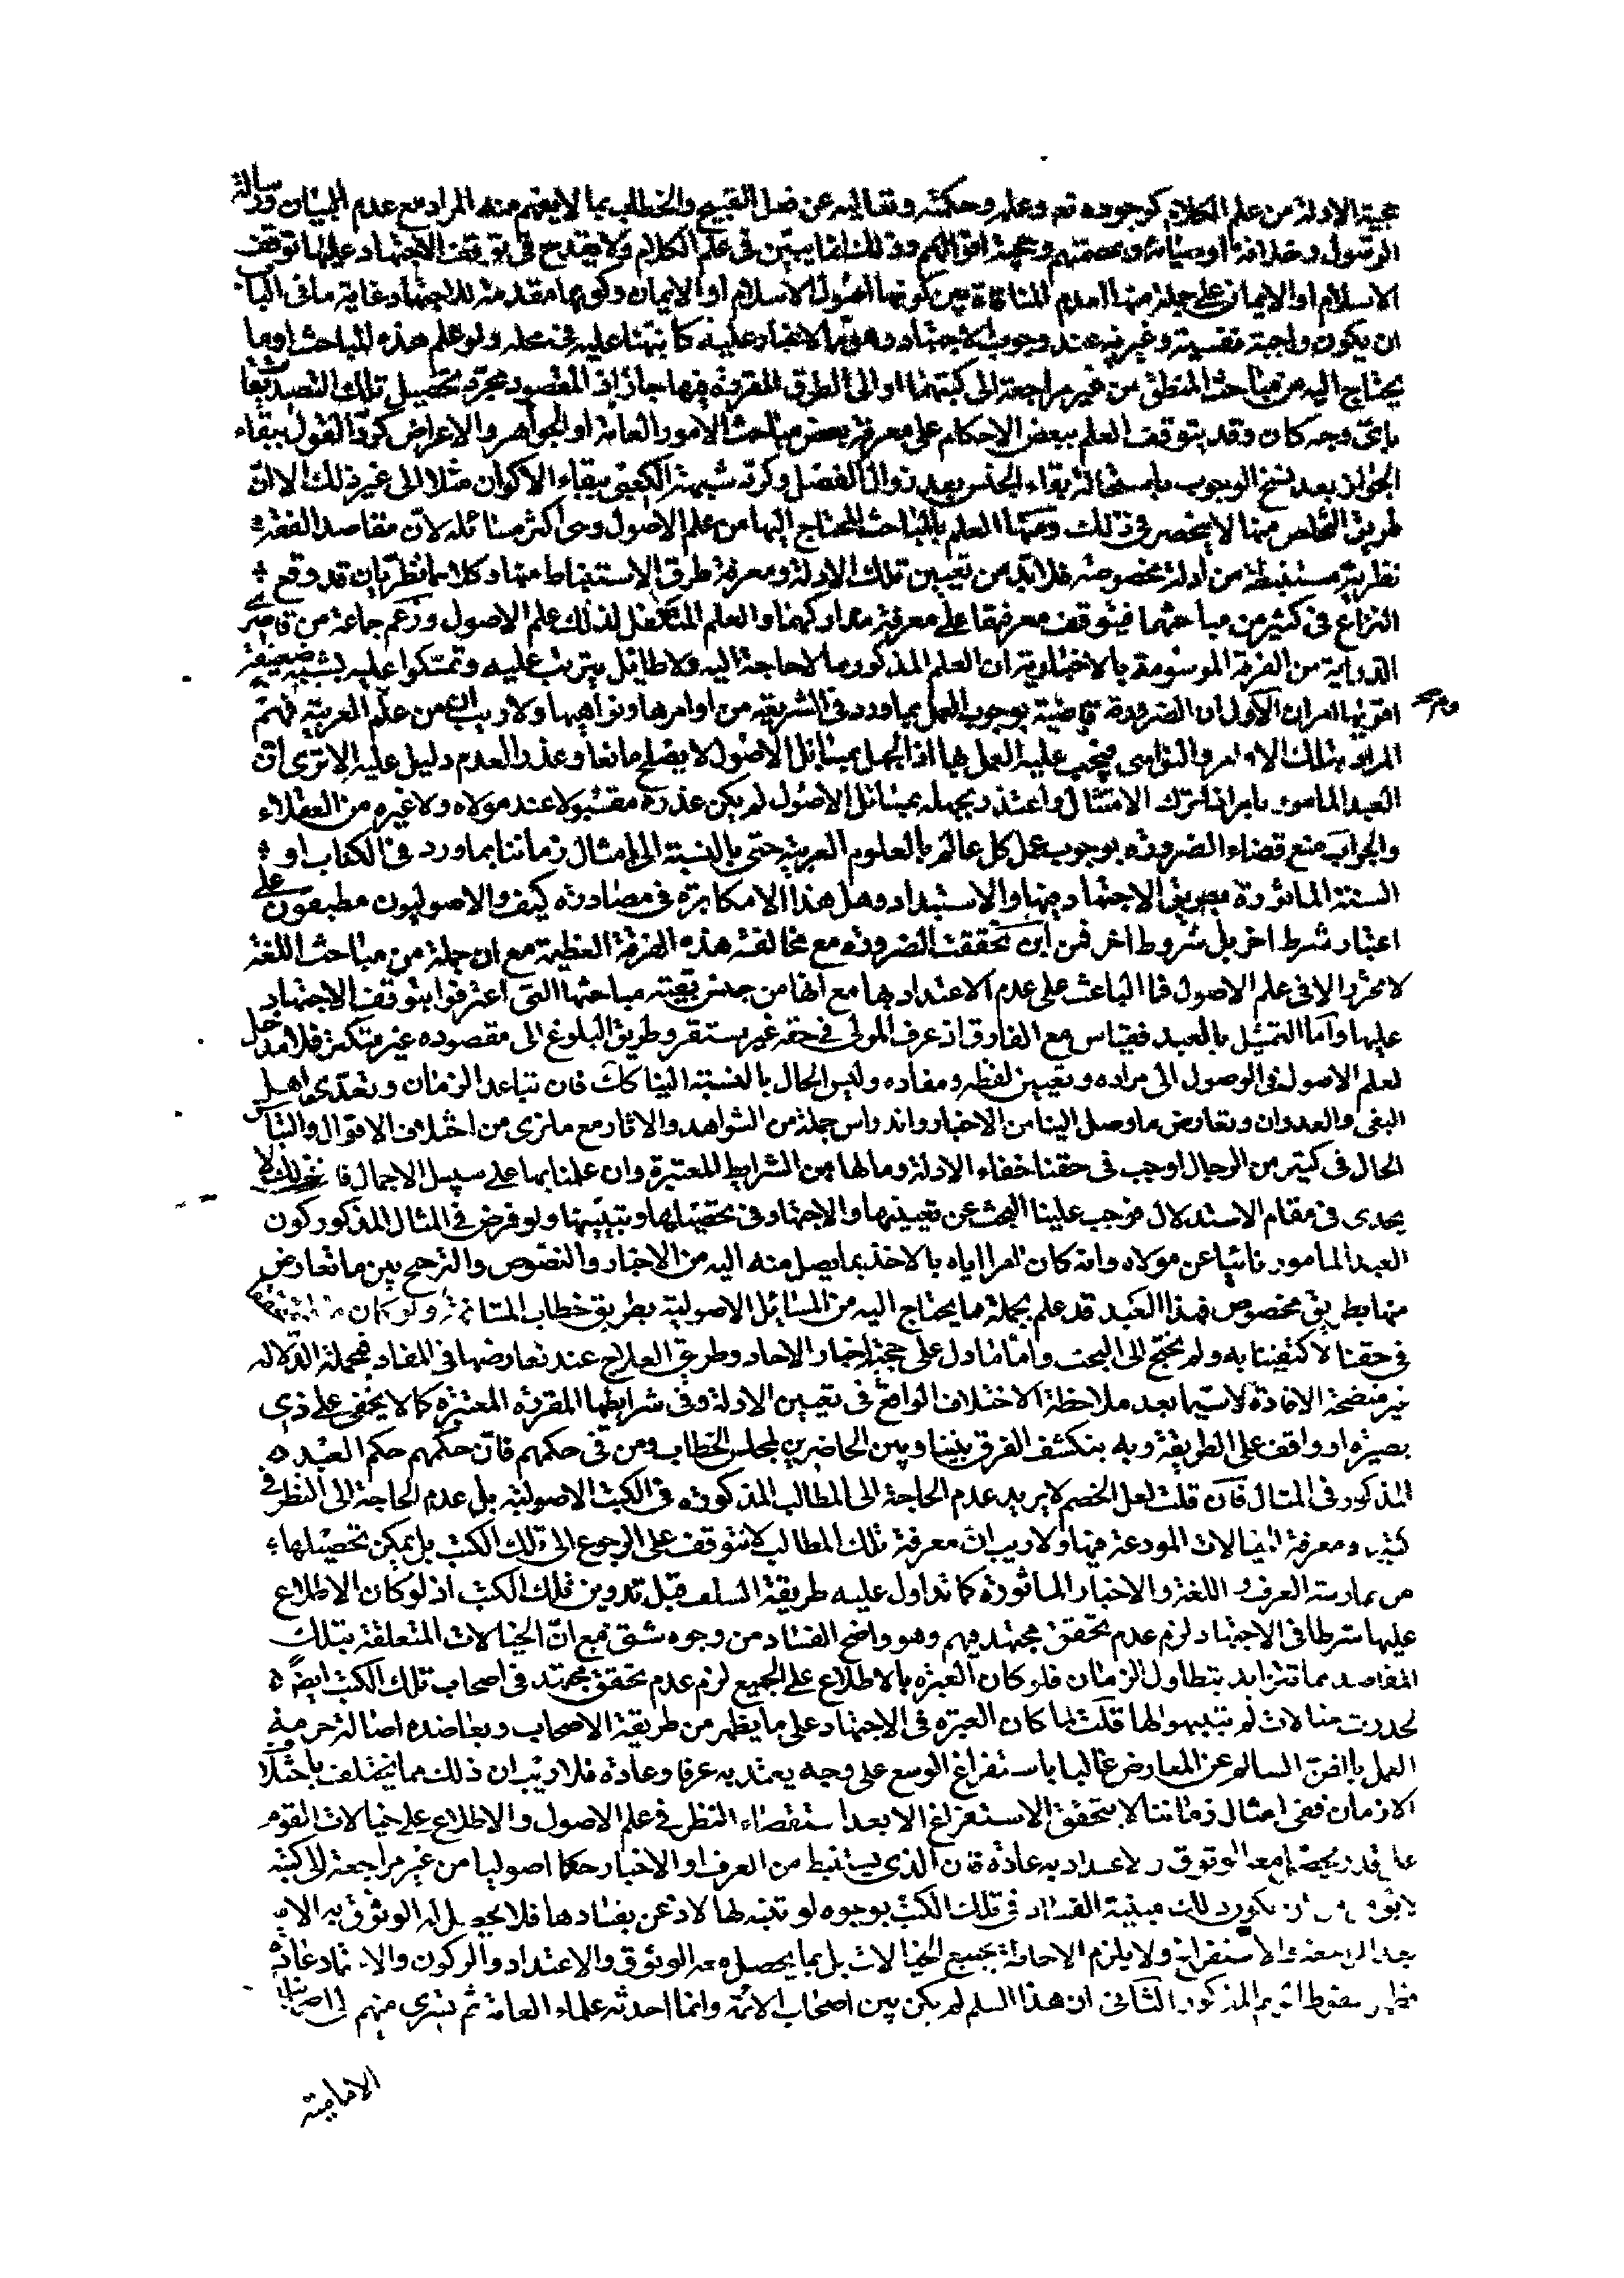 حجية الادلة من علم الكلام كوجوده تعم وعلمه وحكمته وتعاليه عن فعل القبيح والخطاب بما لا يفهم منه المراد مع عدم البيان ورسالة
الرسول وخلافة اوصيائه وعصمتهم وحجية اقوالهم وذلك انما يتبين في علم الكلام ولا يقدح في توقف الاجتهاد عليها توقف
الاسلام او الايمان على جملة منها لعدم المنافاة بين كونها اصول الاسلام او الايمان وكونها مقدمة للاجتهاد غاية ما في البا
ان يكون واجبة نفسية وغيرية عند وجوب الاجتهاد وهو مما لا غبار عليه كما بينها عليه في محله ولو علم هذه المباحث او ما
يحتاج اليه من مباحث المنطق من غير مراجعة الى كتبهما او الى الطرق المقررة فيها جاز اذ المقصود مجرد تحصيل تلك التصديقا
باى وجه كان وقد يتوقف العلم ببعض الاحكام على معرفة بعض مباحث الامور العامة او الجواهر والاعراض كرد القول ببقاء
الجواز بعد نسخ الوجوب باستحالة بقاء الجنس بعد زوال الفصل وكرد شبهة الكعبى ببقاء الاكوان مثلا الى غير ذلك الا ان
طريق التخلص منها لا ينحصر في ذلك ومنها العلم بالمباحث المحتاج اليها من علم الاصول وهى اكثر مسائله لان مقاصد الفقه
نظرية مستنبطة من ادلة مخصوصة فلا بد من تعيين تلك الادلة ومعرفة طرق الاستنباط منها وكلاهما نظريان قد وقع
النزاع في كثير من مباحثهما فيتوقف معرفتها على معرفة مداركهما والعلم المتكفل لذلك علم الاصول وزعم جماعة من قاصرى
الدراية من الفرقة الموسومة بالاخبارية ان العلم المذكور مما لا حاجة اليه ولا طائل يترتب عليه وتمسكوا عليه بشبه ضعيفة
اقويها امران الاول ان الضرورة قاضية بوجوب العمل بما ورد في الشريعة من اوامرها ونواهيها ولا ريب ان من علم العربية فهم
المراد بتلك الاوامر والنواهى فيجب عليه العمل بها اذ الجهل بمسائل الاصول لا يصلح مانعا وعذرا لعدم دليل عليه الا ترى ان
العبد المأمور بامر اذا ترك الامتثال واعتذر بجهله بمسائل الاصول لم يكن عذره مقبولا عند مولاه ولا غيره من العقلاء
والجواب منع قضاء الضرورة بوجوب عمل كل عالم بالعلوم العربية حتى بالنسبة الى امثال زماننا بما ورد في الكتاب او
السنة الماثورة بطريق الاجتهاد فيها والاستبداد وهل هذا الا مكابرة في مصادرة كيف والاصوليون مطبقون على
اعتبار شرط اخر بل شروط اخر فمن اين تحققت الضرورة مع مخالفة هذه الفرقة العظيمة مع ان جملة من مباحث اللغة
لا محرر الا في علم الاصول فما الباعث على عدم الاعتداد بها مع انها من جنس بقية مباحثها التى اعترفوا بتوقف الاجتهاد
عليها واما التمثيل بالعبد فقياس مع الفارق اذ عرف المولى في حقه غير مستقر وطريق البلوغ الى مقصوده غير متكثر فلا مدخل
لعلم الاصول في الوصول الى مراده وتعيين لفظه ومفاده وليس الحال بالنسبة الينا كك فان تباعد الزمان وتعدى اهل
البغى والعدوان وتعارض ما وصل الينا من الاخبار واندراس جملة من الشواهد والاثار مع ما نرى من اختلاف الاقوال والتباس
الحال في كثير من الرجال اوجب في حقنا خفاء الادلة وما لها من الشرايط المعتبرة وان علمنا بها على سبيل الاجمال فان ذلك لا
يجدى في مقام الاستدلال فوجب علينا البحث عن تعيينها والاجتهاد في تحصيلها وتبيينها ولو فرض في المثال المذكور كون
العبد المامور نائيا عن مولاه وانه كان امرا اياه بالاخذ بما يصل منه اليه من الاخبار والنصوص والترجيح بين ما تعارض
منها بطريق مخصوص فهذا العبد قد علم بجملة ما يحتاج اليه من المسائل الاصولية بطريق خطاب المشافهة ولو كان
في حقنا لاكتفينا به ولم نحتج الى البحث واما ما دل على حجية اخبار الاحاد وطريق العلاج عند تعارضها في المفاد فمجملة الدلالة
غير متضحة الافادة لا سيما بعد ملاحظة الاختلاف الواقع في تعيين الادلة وفى شرايطها المقررة المعتبرة كما لا يخفى على ذى
بصيرة او واقف على الطريقة وبه ينكشف الفرق بيننا وبين الحاضرين لمجلس الخطاب ومن في حكمهم فان حكمهم حكم العبد
المذكور في المثال فان قلت لعل الخصم لا يريد عدم الحاجة الى المطالب المذكورة في الكتب الاصولية بل عدم الحاجة الى النظر في
كتبه ومعرفة الخيالات المودعة فيها ولا ريب ان معرفة تلك المطالب لا تتوقف على الرجوع الى تلك الكتب بل يمكن تحصيلها
من ممارسة العرف واللغة والاخبار الماثورة كما تداول عليه طريقة السلف قبل تدوين تلك الكتب اذ لو كان الاطلاع
عليها شرطا في الاجتهاد لزم عدم تحقق مجتهد فيهم وهو واضح الفساد من وجوه شتى مع ان الخيالات المتعلقة بتلك
المقاصد مما تتزايد بتطاول الزمان فلو كان العبرة بالاطلاع على الجميع لزم عدم تحقق مجتهد في اصحاب تلك الكتب ايضا
لحدوث خيالات لم يتنبهوا لها قلت لما كان العبرة في الاجتهاد على ما يظهر من طريقة الاصحاب ويعاضده اصالة حرمة
العمل بالظن السالم عن المعارض غالبا باستفراغ الوسع على وجه يعتد به عرفا وعادة فلا ريب ان ذلك مما يختلف باختلا
الازمان ففى امثال زماننا لا يتحقق الاستفراغ الا بعد استقصاء النظر في علم الاصول والاطلاع على خيالات القوم
على قدر يحصل معه الوثوق والاعتداد به عادة فان الذى يستنبط من العرف او الاخبار حكما اصوليا من غير مراجعة الى كتبه
مبنية الفساد في تلك الكتب بوجوه لو تنبه لها لاذعن بفسادها فلا يحصل له الوثوق به الا
بعد المراجعة والاستفراغ ولا يلزم الاحاطة بجميع الخيالات بل بما يحصل معه الوثوق والاعتداد والركون والاعتماد عادة
فظهر سقوط المذكور الثانى ان هذا العلم لم يكن بين اصحاب الائمة وانما احدثه علماء العامة ثم تسرى منهم الى اصحابنا
الامامية